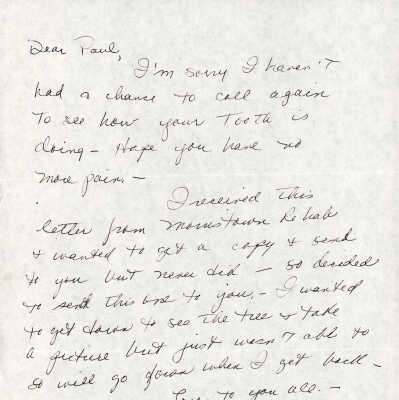 Dear Paul,
I'm sorry I haven't
had a chance to call again
to see how your tooth is
doing - Hope you have no
more pain. -
I received this
letter from Morristown Rehab
& wanted to get a copy & send
to you but never did - so decided
to send this one to you. - I wanted
to get down to see the tree & take
a picture but just wasn't able to
so will go down when I get back -
to you all. -